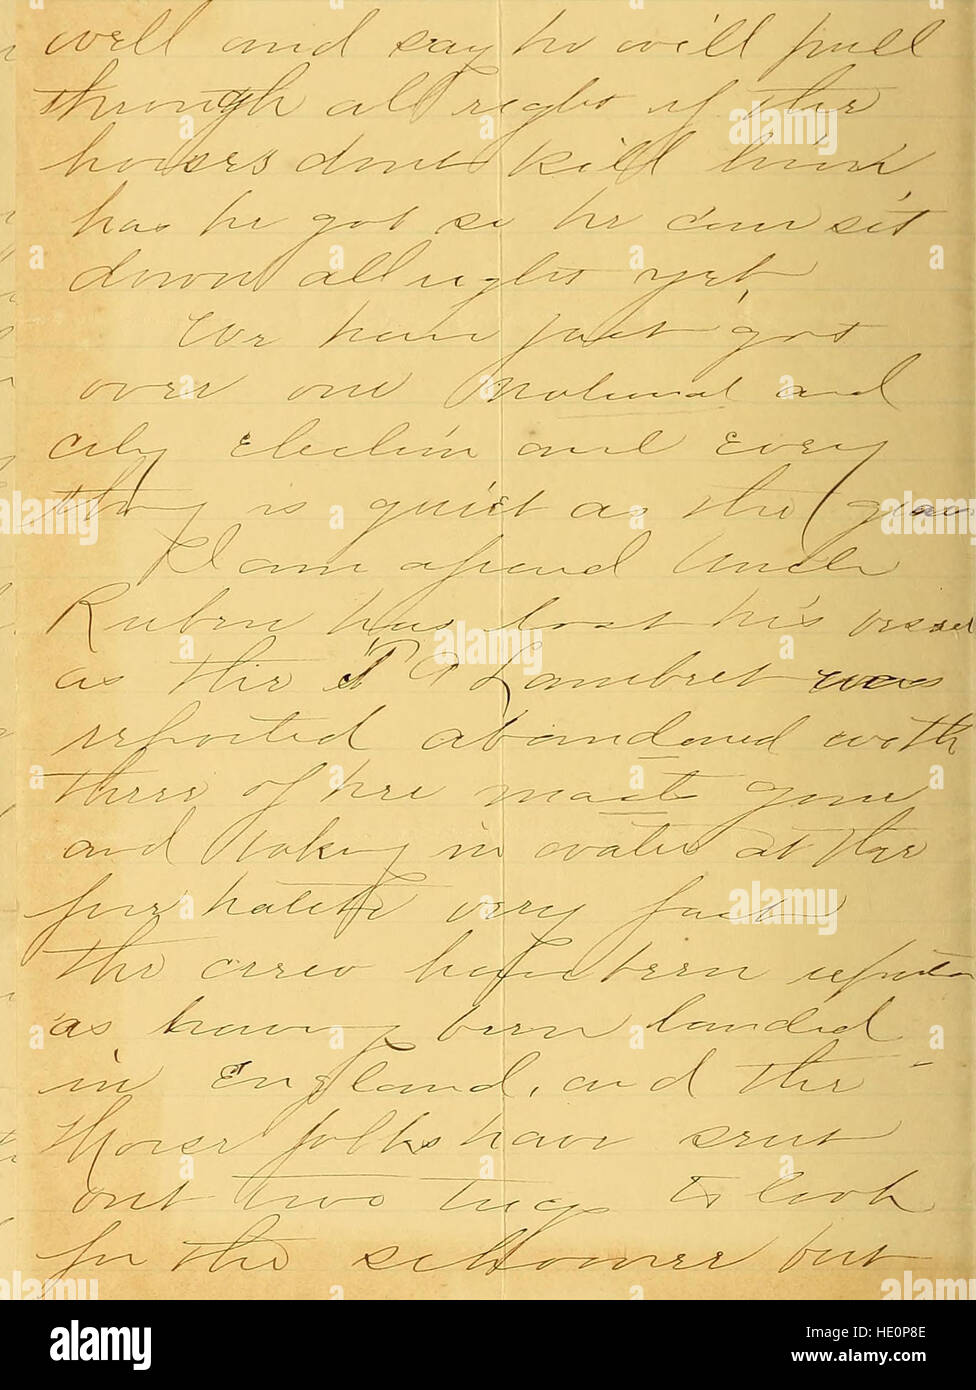 well and say he will pull
through all right if the
horses dont kill him,
has he got so he can sit
down all right yet,
We have just got
over one national and
city election and every
thing is quiet as the grave
I am afraid Uncle
Ruben has lost his vessel
as the T A Lambert was
reported abandoned with
three of her mast gone
and taking in water at the
fore hatch very fast
the crew have been reported
as having been landed
in England, and the
Morse folks have sent
out two tugs to look
for the schooner but
alamy
Image ID: HE0P8E
www.alamy.com